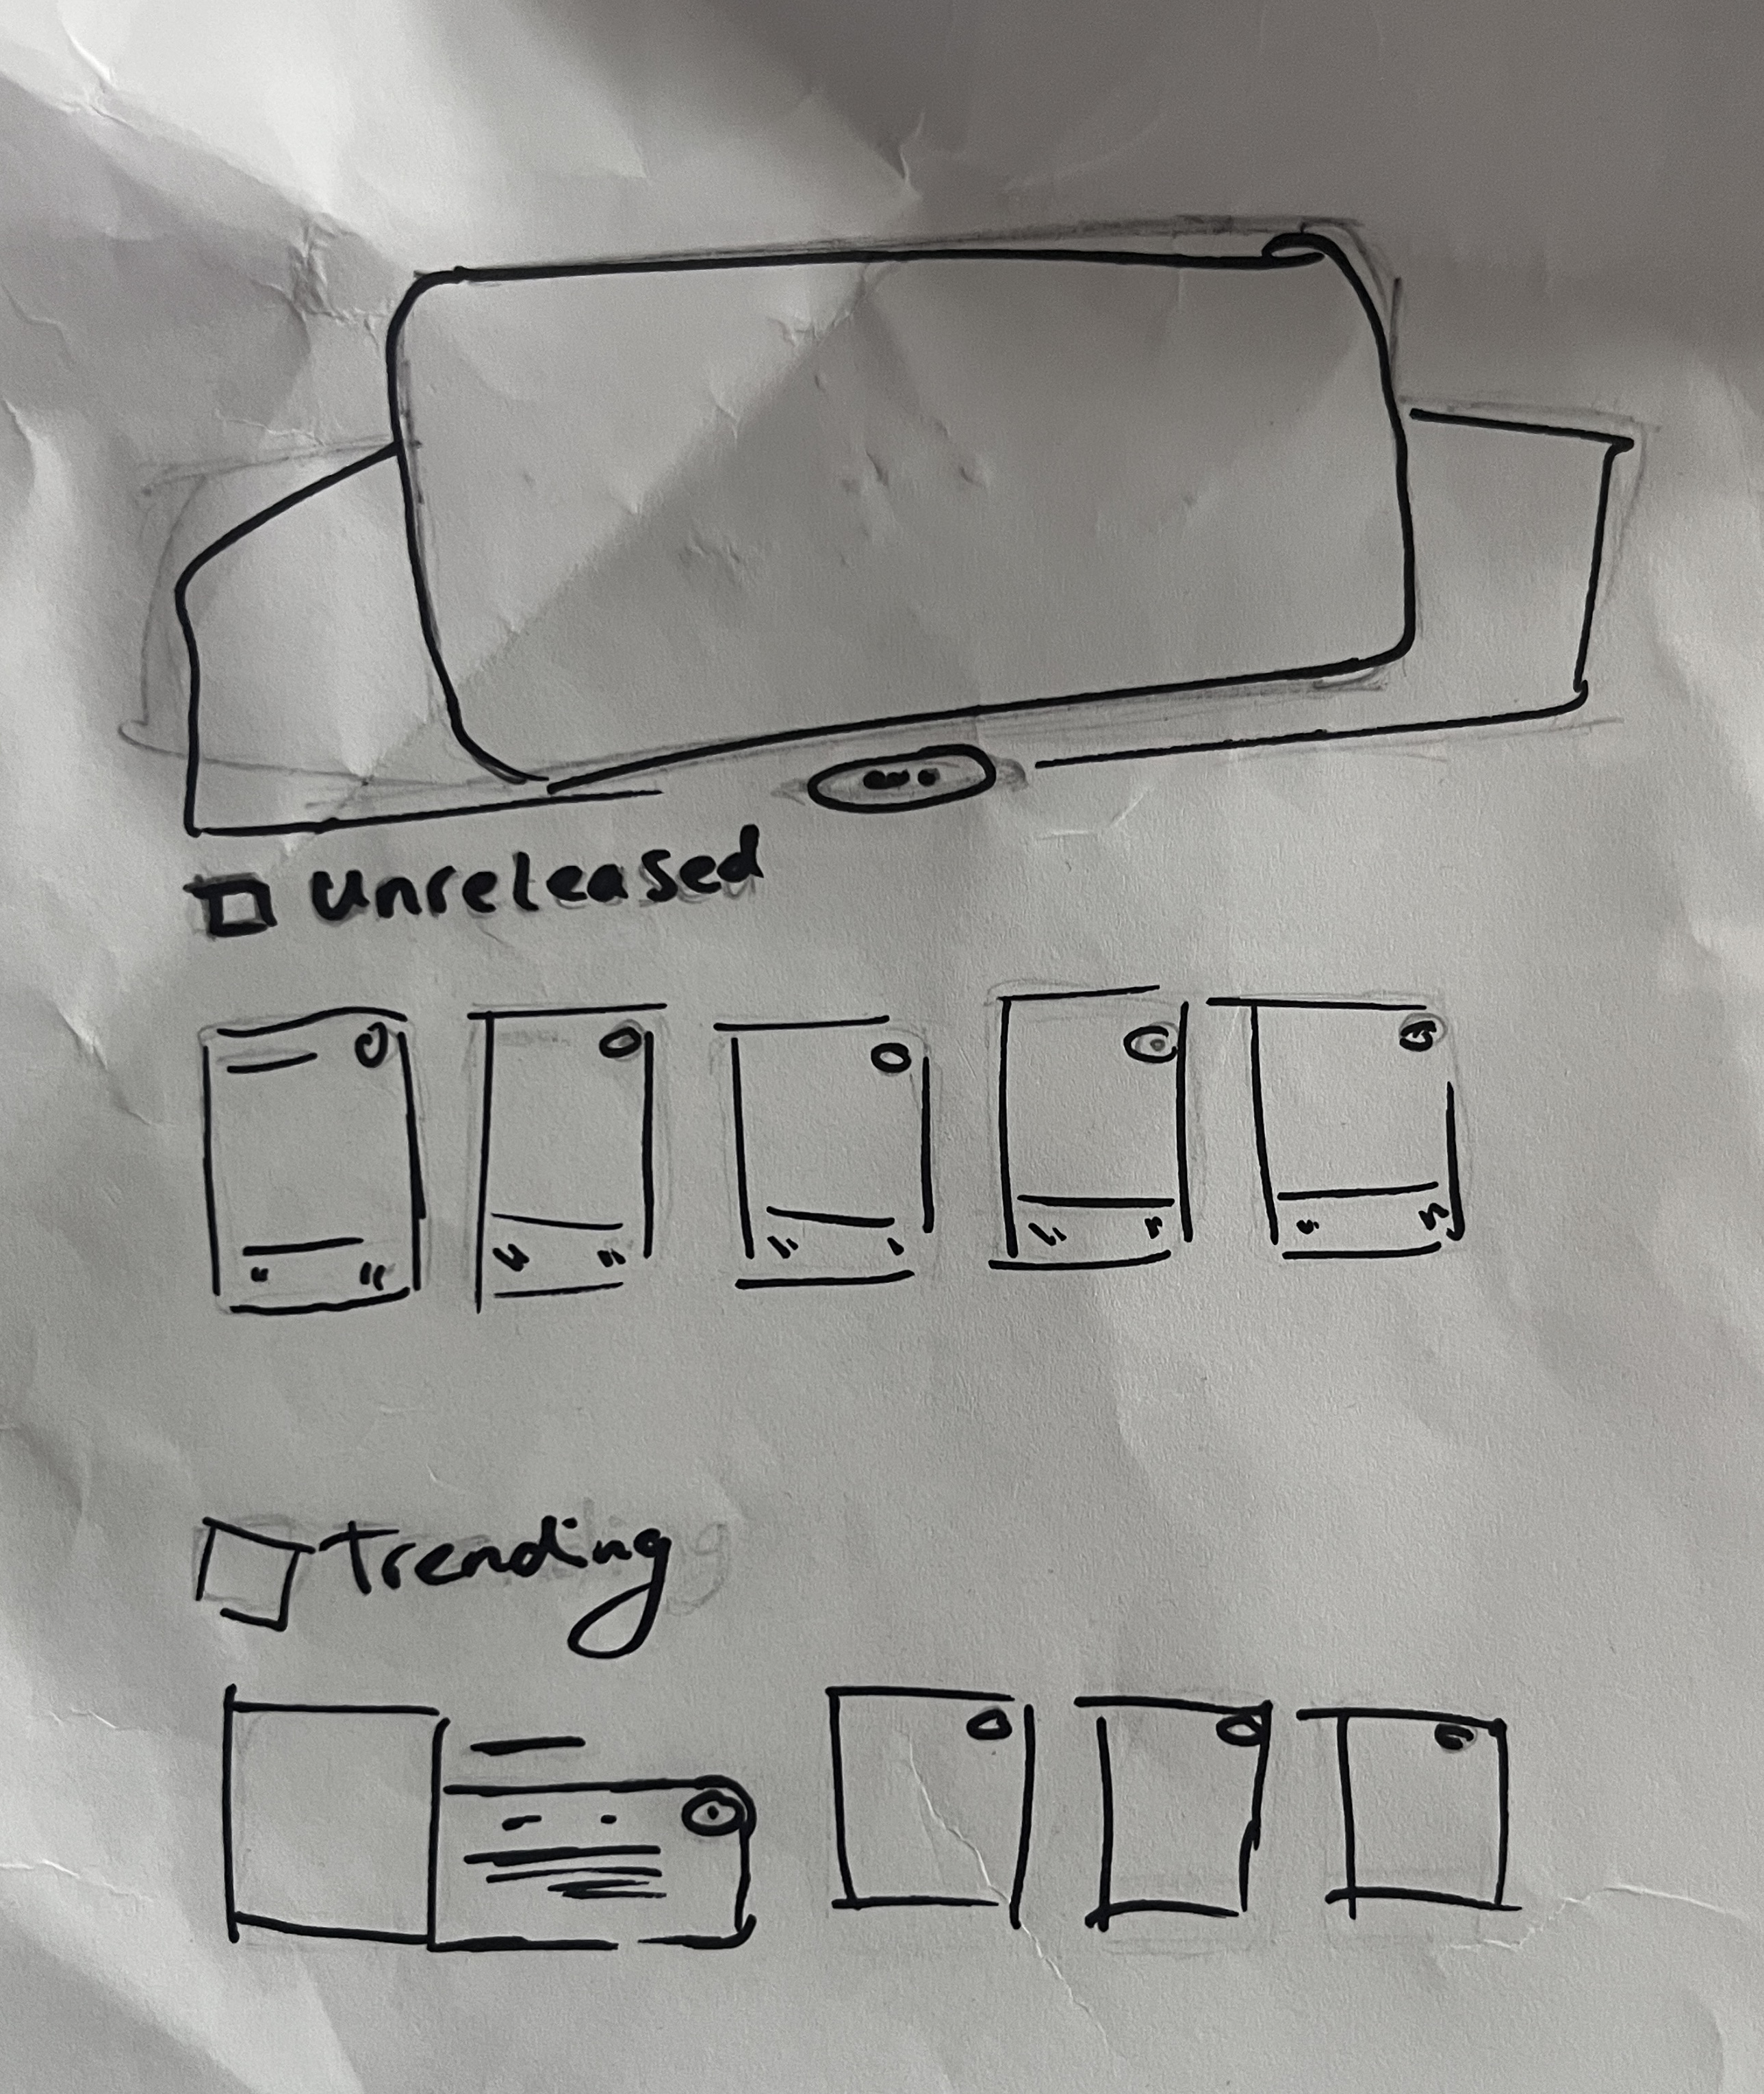 unreleased
Trending